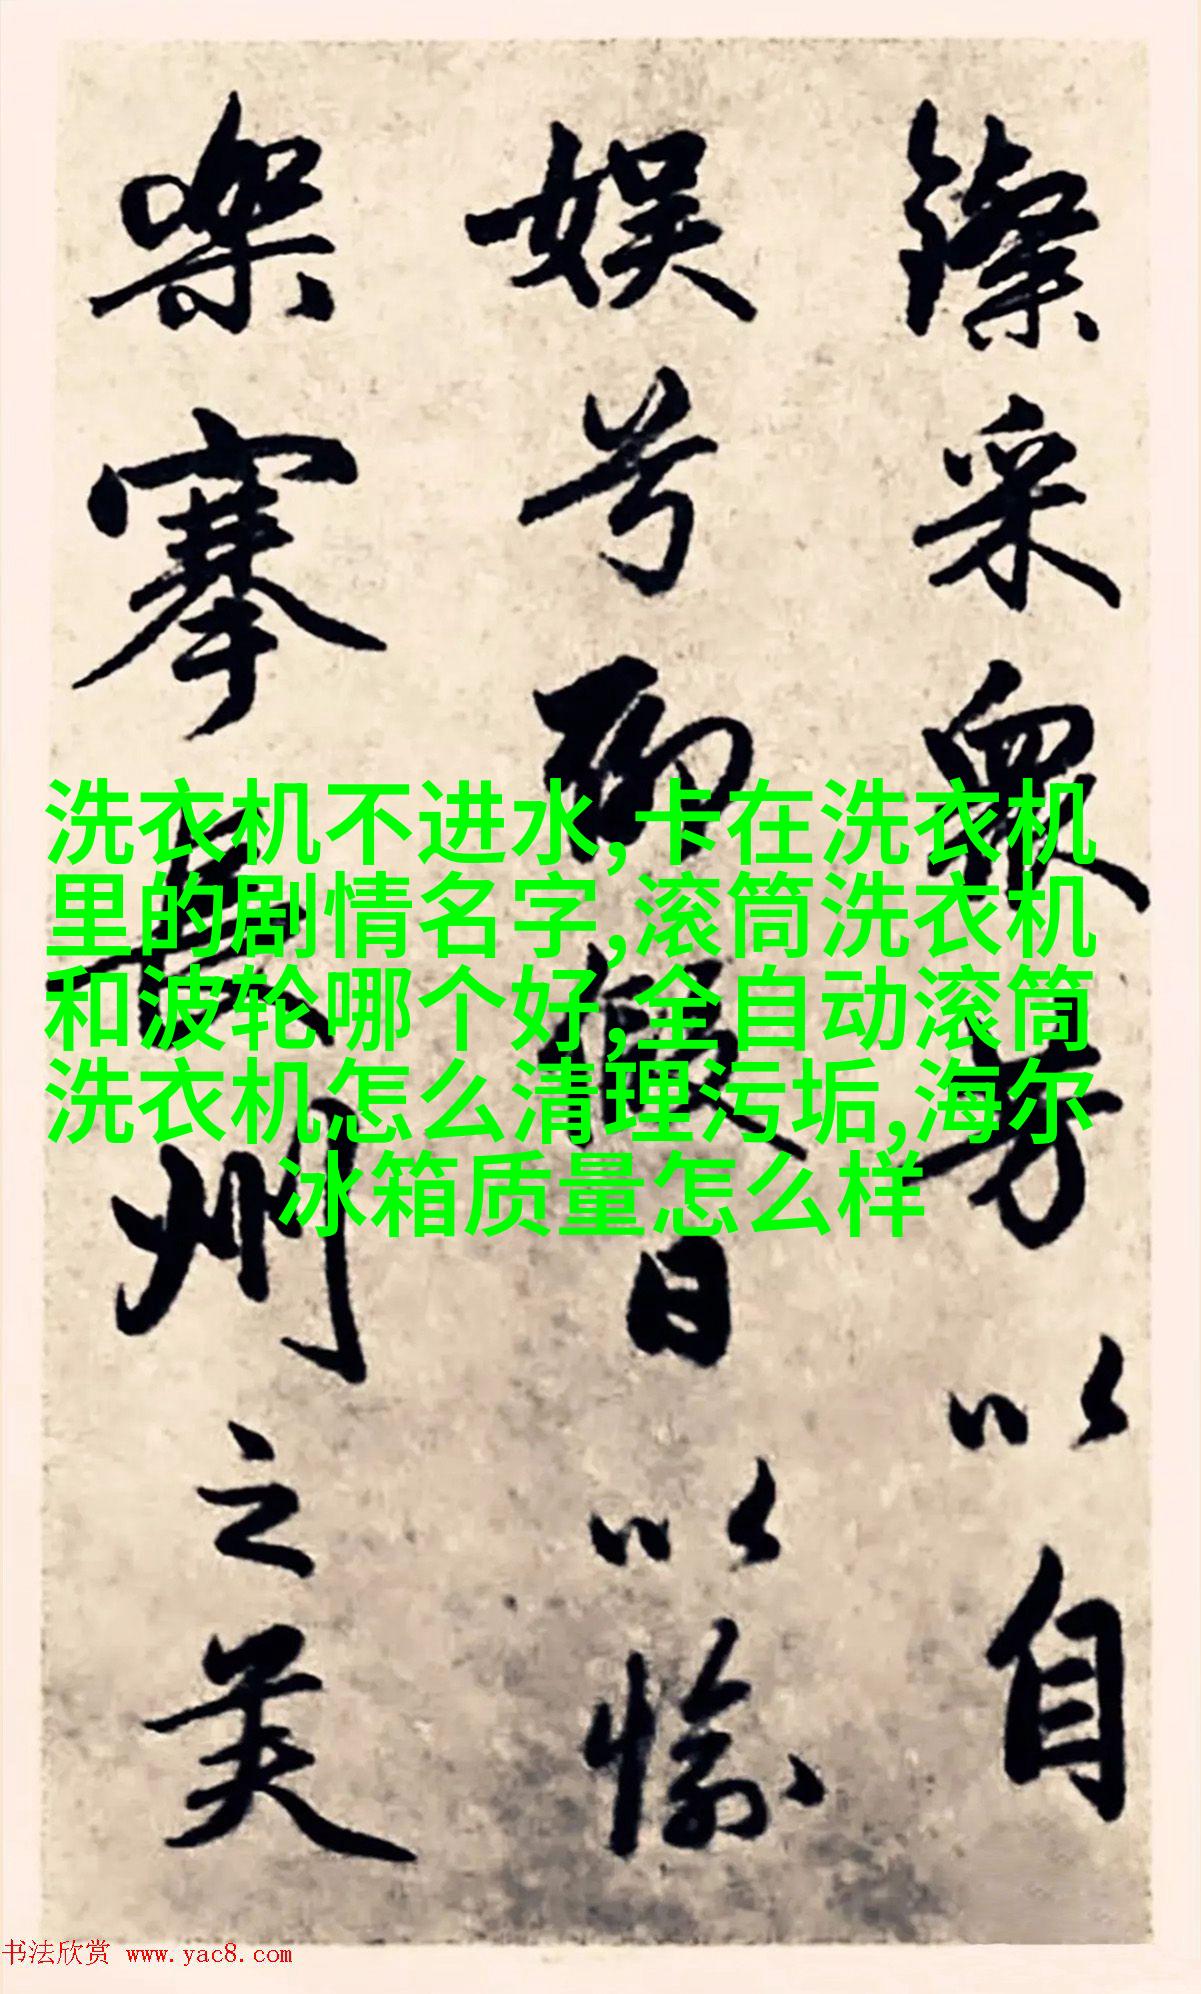 采衆芳以自
娱兮聊日以愉
樂搴長州之美
洗衣机不进水,卡在洗衣机
里的剧情名字,滚筒洗衣机
和波轮哪个好,全自动滚筒
洗衣机怎么清理污垢,海尔
冰箱质量怎么样
书法欣赏 www.yac8.com